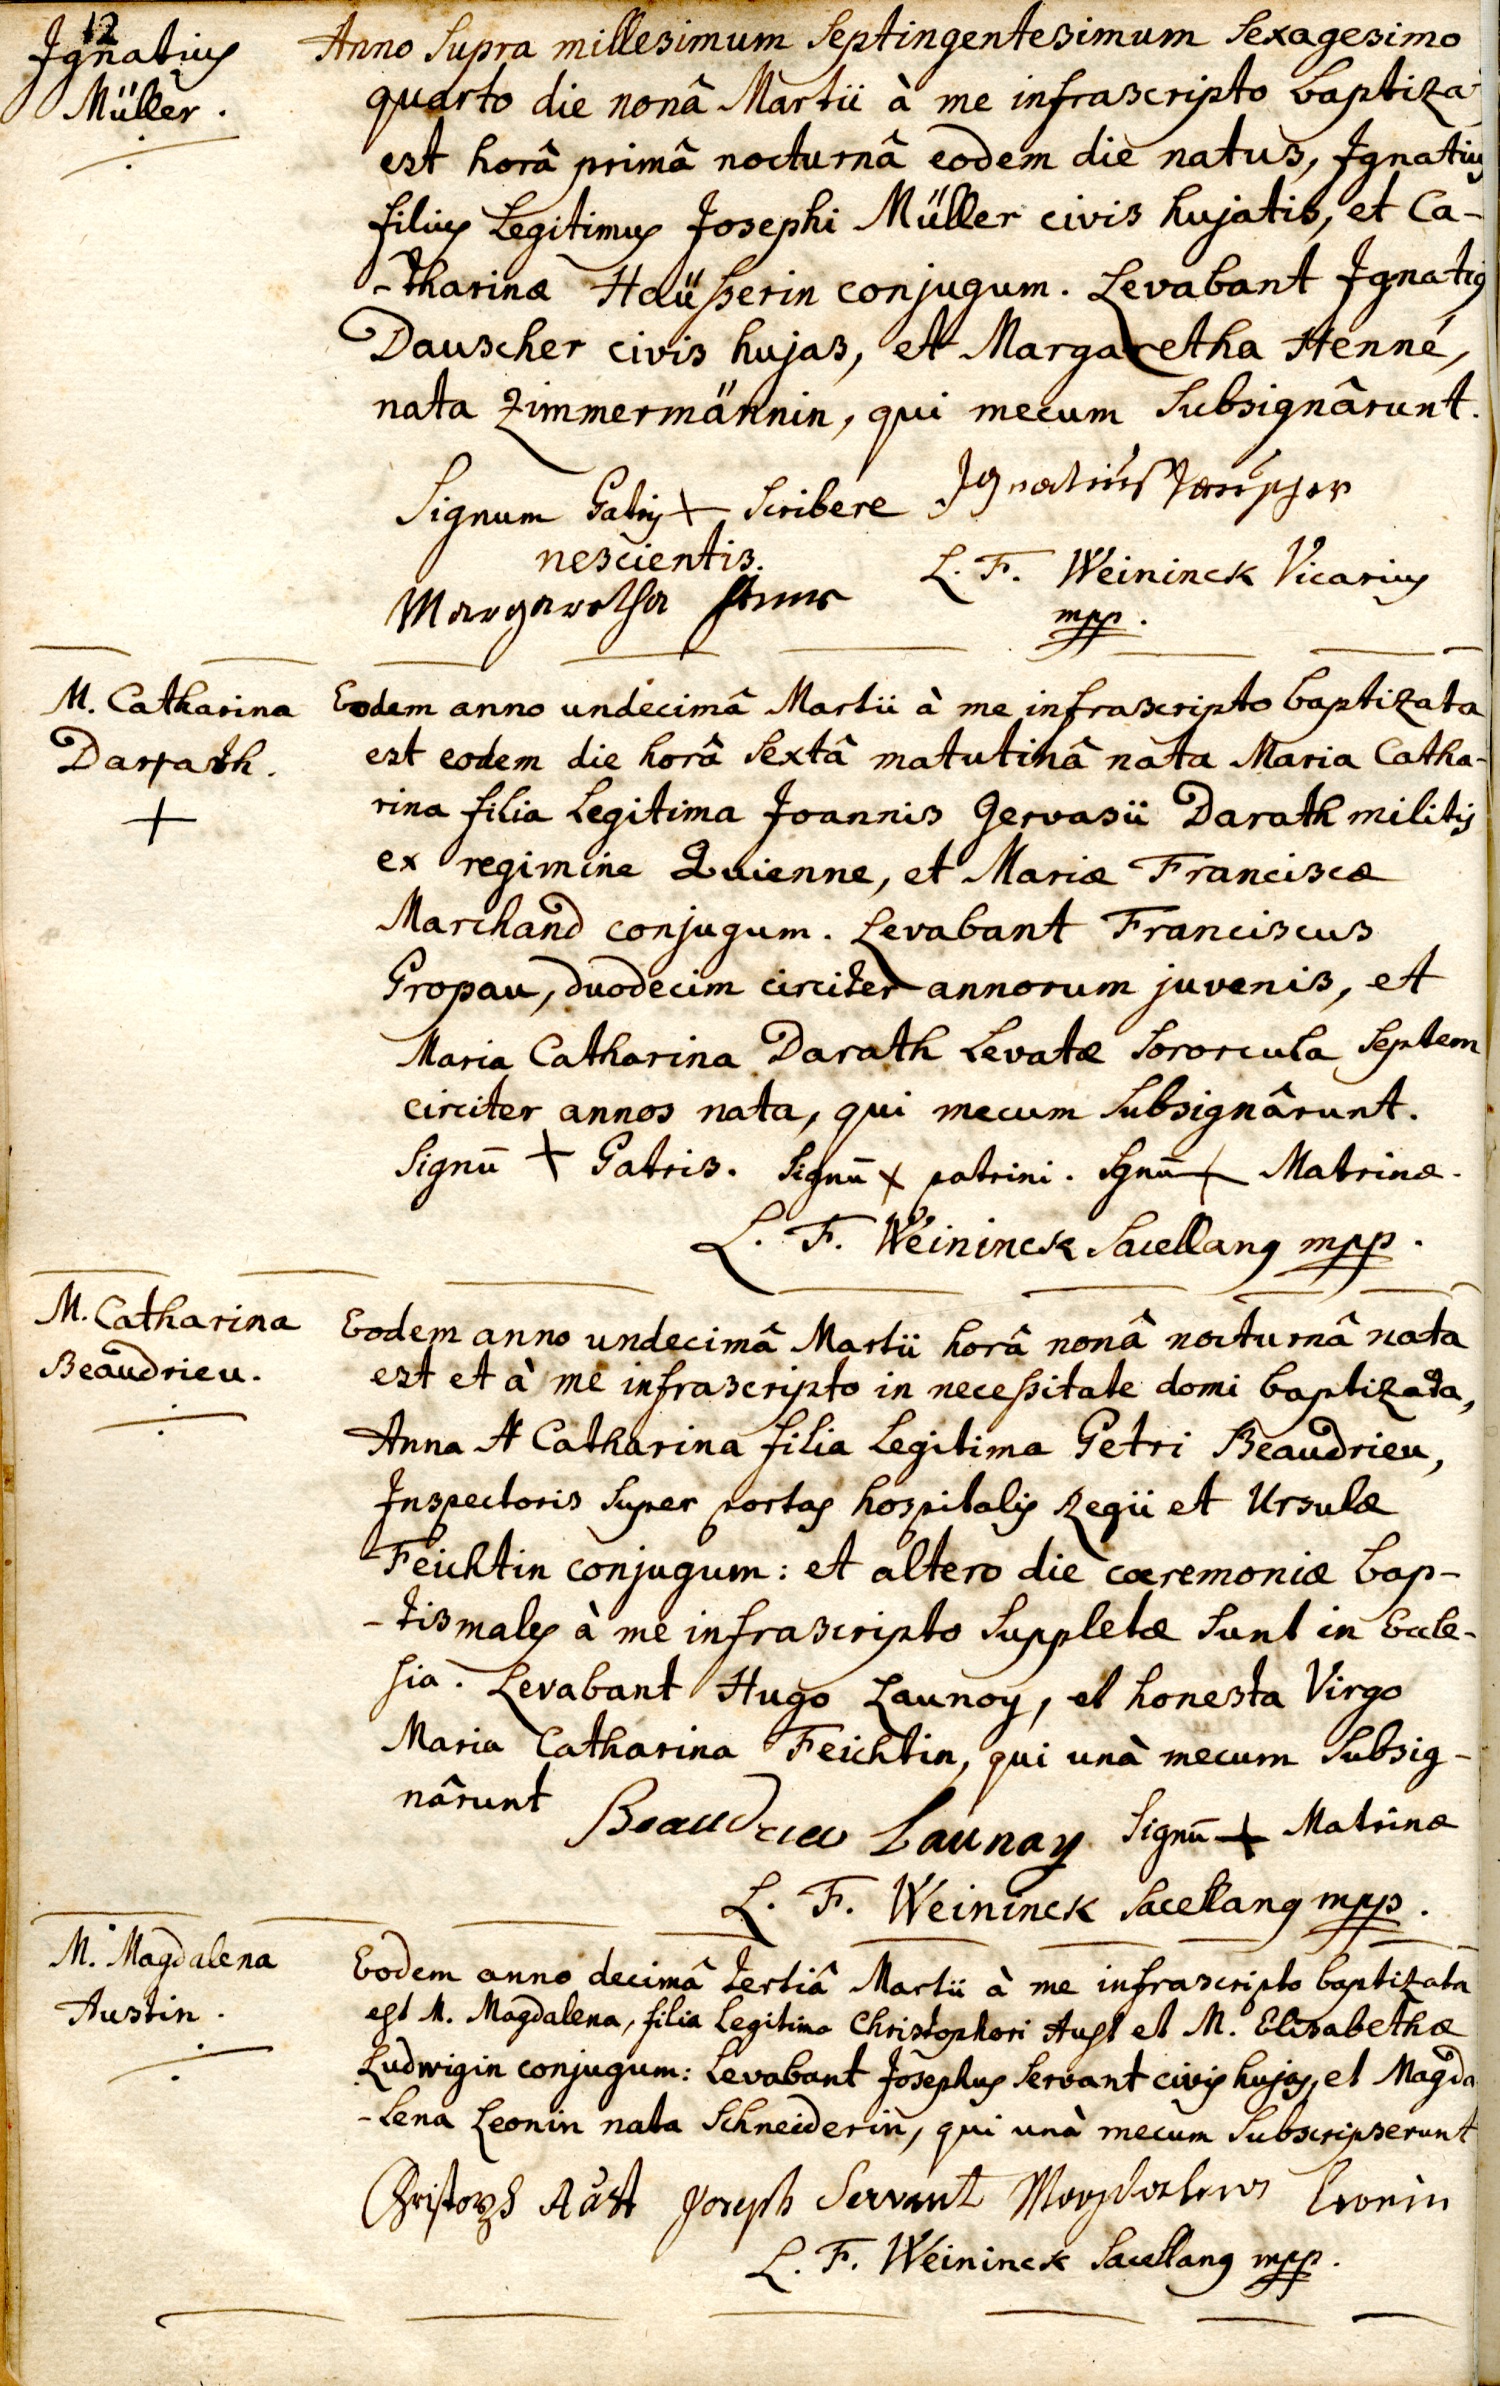 12
Ignatius
Müller.
Anno supra millesimum septingentesimum sexagesimo
quarto die nonâ Martii à me infrascripto baptiza-
est horâ primâ nocturnâ eodem die natus, Ignatius
filius Legitimus Josephi Müller civis hujatis, et Ca-
-tharinæ Haüsserin conjugum. Levabant Ignatius
Dauscher civis hujas, et Margaretha Henné,
nata Zimmermännin, qui mecum subsignârunt.
Signum Patris + scribere Ignatius
nescientis. L. F. Weininck Vicarius
Margaretha mpp.
M. Catharina
Darrath.
+
Eodem anno undecimâ Martii à me infrascripto baptizata
est eodem die horâ sextâ matutinâ nata Maria Catha-
rina filia Legitima Joannis Gervasii Darath militis
ex regimine Quienne, et Mariæ Franciscæ
Marchand conjugum. Levabant Franciscus
Propau, duodecim circiter annorum juvenis, et
Maria Catharina Darath Levatæ sororcula septem
circiter annos nata, qui mecum subsignârunt.
Signū + Patris. Signū + patrini. Sgnū + Matrinæ.
L. F. Weininck Sacellanus mpp.
M. Catharina
Beaudrieu.
Eodem anno undecimâ Martii horâ nonâ nocturnâ nata
est et à me infrascripto in necessitate domi baptizata,
Anna Catharina filia Legitima Petri Beaudrieu,
Inspectoris super portas hospitalis Regii et Ursulæ
Feichtin conjugum: et altero die cæremoniæ bap-
-tismales à me infrascripto suppletæ sunt in Eccle-
sia. Levabant Hugo Launoy, et honesta Virgo
Maria Catharina Feichtin, qui unà mecum subsig-
nârunt Beaudrieu Launay Signū + Matrinæ
L. F. Weininck Sacellanus mpp.
M. Magdalena
Austin.
Eodem anno decimâ tertiâ Martii à me infrascripto baptizata
est M. Magdalena, filia Legitima Christophori Aust et M. Elisabethæ
Ludwigin conjugum: Levabant Josephus Servant civis hujas, et Magda
-lena Leonin nata Schneiderin, qui unà mecum subscripserunt
Christoph Aust Joseph Servant Magdalena Leonin
L. F. Weininck Sacellanus mpp.